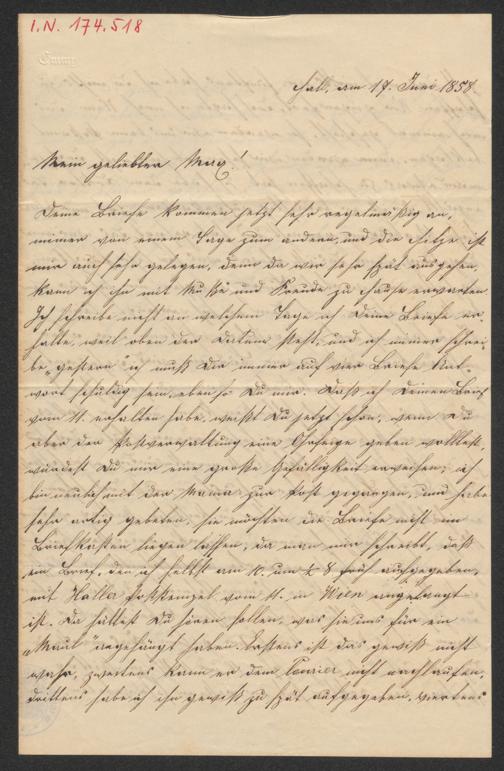 I.N. 174.518
Hall, am 17. Juni 1858
Mein geliebter Max!
Deine Briefe kommen jetzt sehr regelmäßig an,
immer von einem Tage zum andern, und die Hitze ist
mir auch sehr gelegen, denn da wir sehr spät ausgehen,
kann ich ihn mit Muße und Freude zu Hause erwarten.
Ich schreibe nicht an welchem Tage ich Deine Briefe er-
halte, weil oben der Datum steht, und ich immer schrei-
be „gestern" ich muß Dir immer auf vier Briefe Ant-
wort schuldig sein, ebenso Du mir. Daß ich Deinen Brief
vom 11. erhalten habe, weißt Du jetzt schon, wenn Du
aber der Postverwaltung eine Ohrfeige geben wolltest,
würdest Du mir eine große Gefälligkeit erweisen; ich
bin neulich mit der Mama zur Post gegangen, und habe
sehr artig gebeten, sie möchten die Briefe nicht im
Briefkasten liegen lassen, da man mir schreibt, daß
ein Brief, den ich selbst am 10. um ½ 8 früh aufgegeben,
mit Haller Poststempel vom 11. in Wien angelangt
ist. Da hättest Du hören sollen, was sie uns für ein
„Maul" angehängt haben. Erstens ist das gewiß nicht
wahr, zweitens kann er dem Courier nicht nachlaufen,
drittens habe ich ihn gewiß zu spät aufgegeben, viertens